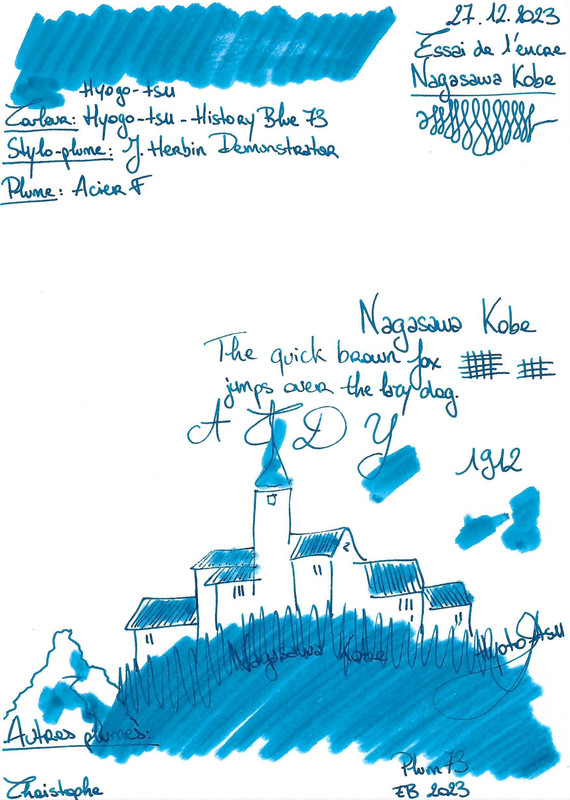 27.12.2023
Essai de l'encre
Nagasawa Kobe
Hyogo-tsu
Couleur: Hyogo-tsu - History Blue 73
Stylo-plume: J. Herbin Demonstrator
Plume: Acier F
Nagasawa Kobe
The quick brown fox
jumps over the lazy dog.
A J D Y
1912
Nagasawa Kobe
Hyoto-tsu
Autres plumes:
Plum 73
EB 2023
Christophe